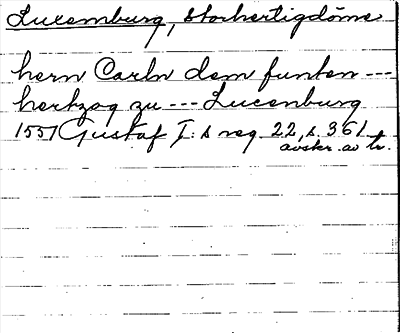 Luxemburg, storhertigdöme
hern Carln dem funten ---
hertzog zu --- Lucenburg
1551 Gustaf I:s reg. 22, s. 361
avskr. av tr.